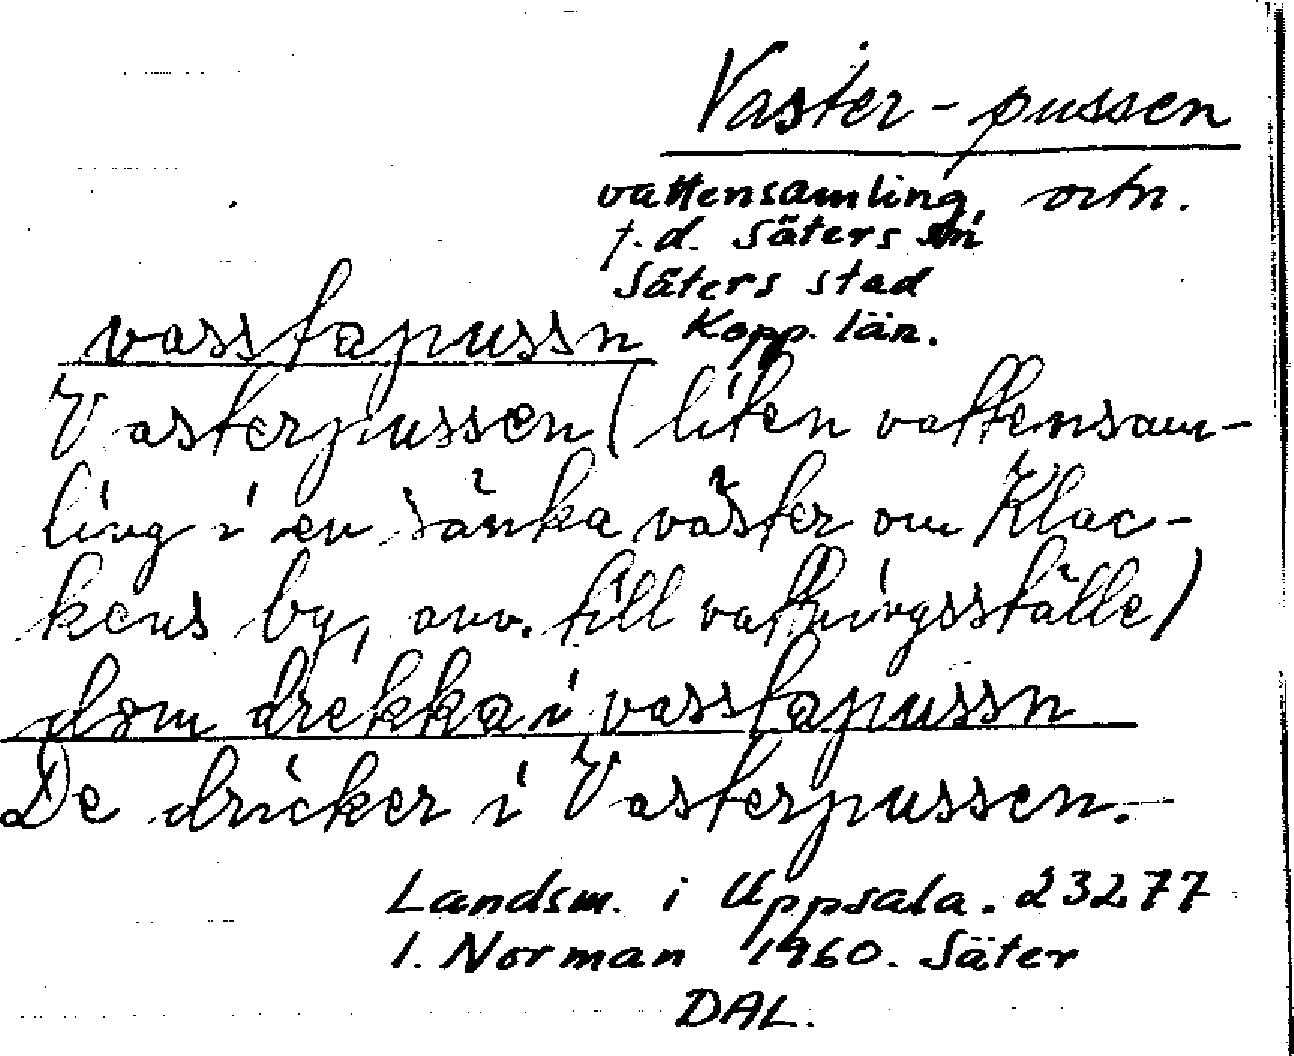 Vaster-pussen
vattensamling, ortn.
f.d. Säters sn
Säters stad
Kopp. län.
vasstapussn
Vasterpussen (liten vattensam-
ling i en sänka väster om Klac-
kens by, anv. till vattningsställe)
dom drekka i vasstapussn
De dricker i Vasterpussen.
Landsm. i Uppsala. 23277
I. Norman 1960. Säter
DAL.